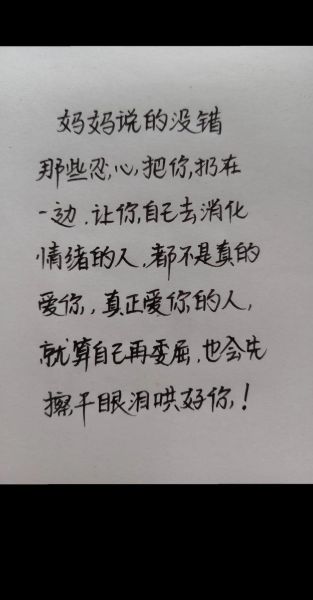 妈妈说的没错
那些忍心,把你,扔在
一边.让你,自己去消化
情绪的人,都不是真的
爱你,真正爱你的人,
就算自己再委屈,也会先
擦干眼泪哄好你,!